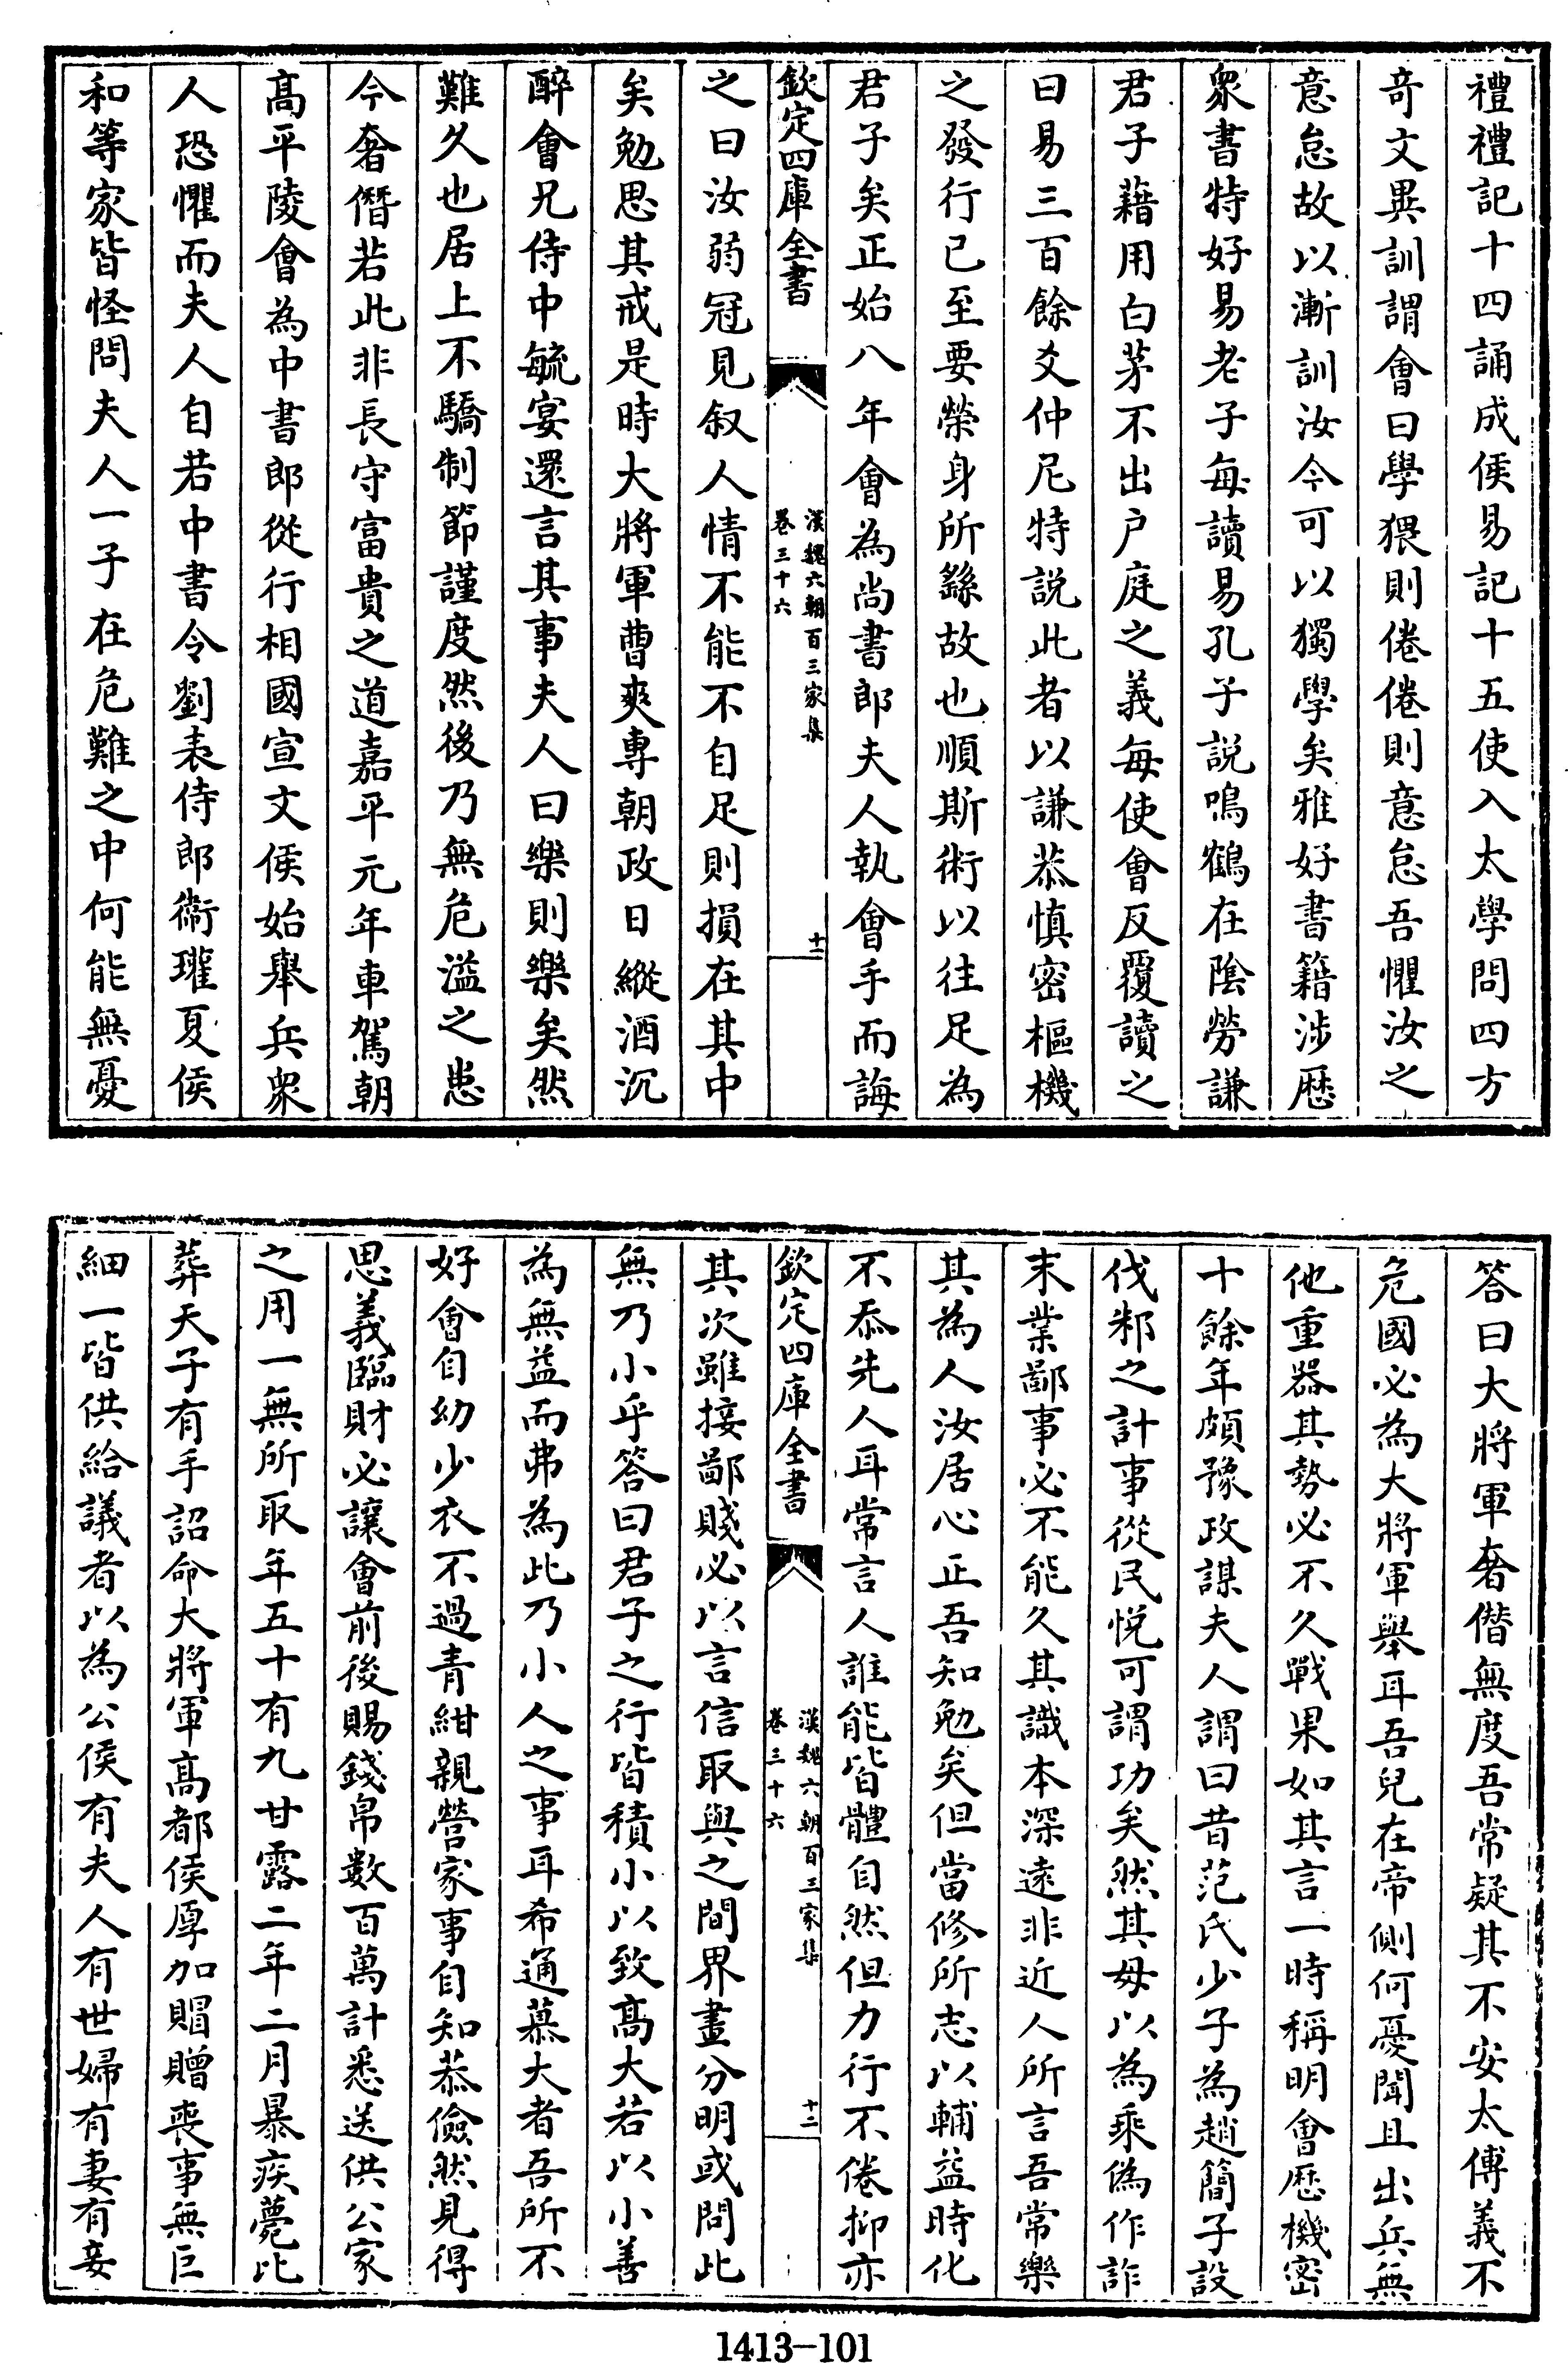 禮禮記十四誦成侯易記十五使入太學問四方
奇文異訓謂會曰學猥則倦倦則意怠吾懼汝之
意怠故以漸訓汝今可以獨學矣雅好書籍涉歴
衆書特好易老子每讀易孔子説鳴鶴在隂勞謙
君子藉用白茅不出户庭之義每使會反覆讀之
曰易三百餘爻仲尼特説此者以謙恭慎密樞機
之發行已至要榮身所繇故也順斯術以往足為
君子矣正始八年會為尚書郎夫人執會手而誨
欽定四庫全書
漢魏六朝百三家集
卷三十六
十一
之曰汝弱冠見叙人情不能不自足則損在其中
矣勉思其戒是時大將軍曹爽専朝政日縱酒沉
醉會兄侍中毓宴還言其事夫人曰樂則樂矣然
難久也居上不驕制節謹度然後乃無危溢之患
今奢僭若此非長守富貴之道嘉平元年車駕朝
髙平陵會為中書郎從行相國宣文侯始舉兵衆
人恐懼而夫人自若中書令劉表侍郎衛瓘夏侯
和等家皆怪問夫人一子在危難之中何能無憂
答曰大將軍奢僭無度吾常疑其不安太傅義不
危國必為大將軍舉耳吾兒在帝側何憂聞且出兵無
他重器其勢必不久戰果如其言一時稱明會歴機密
十餘年頗豫政謀夫人謂曰昔范氏少子為趙簡子設
伐邾之計事從民悦可謂功矣然其母以為乘偽作詐
末業鄙事必不能久其識本深逺非近人所言吾常樂
其為人汝居心正吾知勉矣但當修所志以輔益時化
不忝先人耳常言人誰能皆體自然但力行不倦抑亦
欽定四庫全書
漢魏六朝百三家集
卷三十六
十二
其次雖接鄙賤必以言信取與之間界畫分明或問此
無乃小乎答曰君子之行皆積小以致髙大若以小善
為無益而弗為此乃小人之事耳希通慕大者吾所不
好會自幼少衣不過青紺親營家事自知恭儉然見得
思義臨財必讓會前後賜錢帛數百萬計悉送供公家
之用一無所取年五十有九甘露二年二月暴疾薨比
葬天子有手詔命大將軍髙都侯厚加賵贈喪事無巨
細一皆供給議者以為公侯有夫人有世婦有妻有妾
1413—101